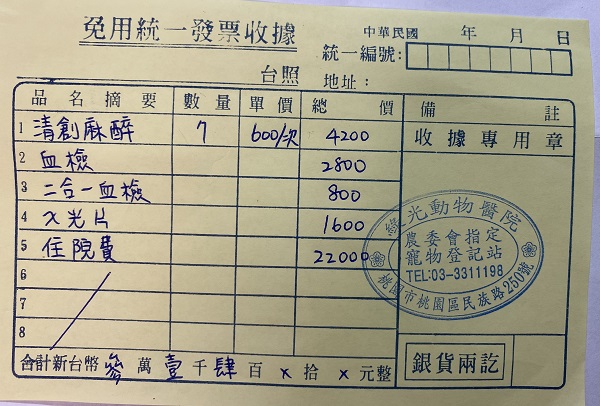 免用統一發票收據
中華民國 年 月 日
統一編號:
台照 地址:
品名摘要 數量 單價 總價 備註
1 清創麻醉 7 600/次 4200 收據專用章
2 血檢 2800
3 二合一血檢 800
4 X光片 1600
5 住院費 22000
6
7
8
綠光動物醫院
農委會指定
寵物登記站
TEL:03-3311198
桃園市桃園區民族路250號
合計新台幣 參 萬 壹 千 肆 百 X 拾 X 元整
銀貨兩訖